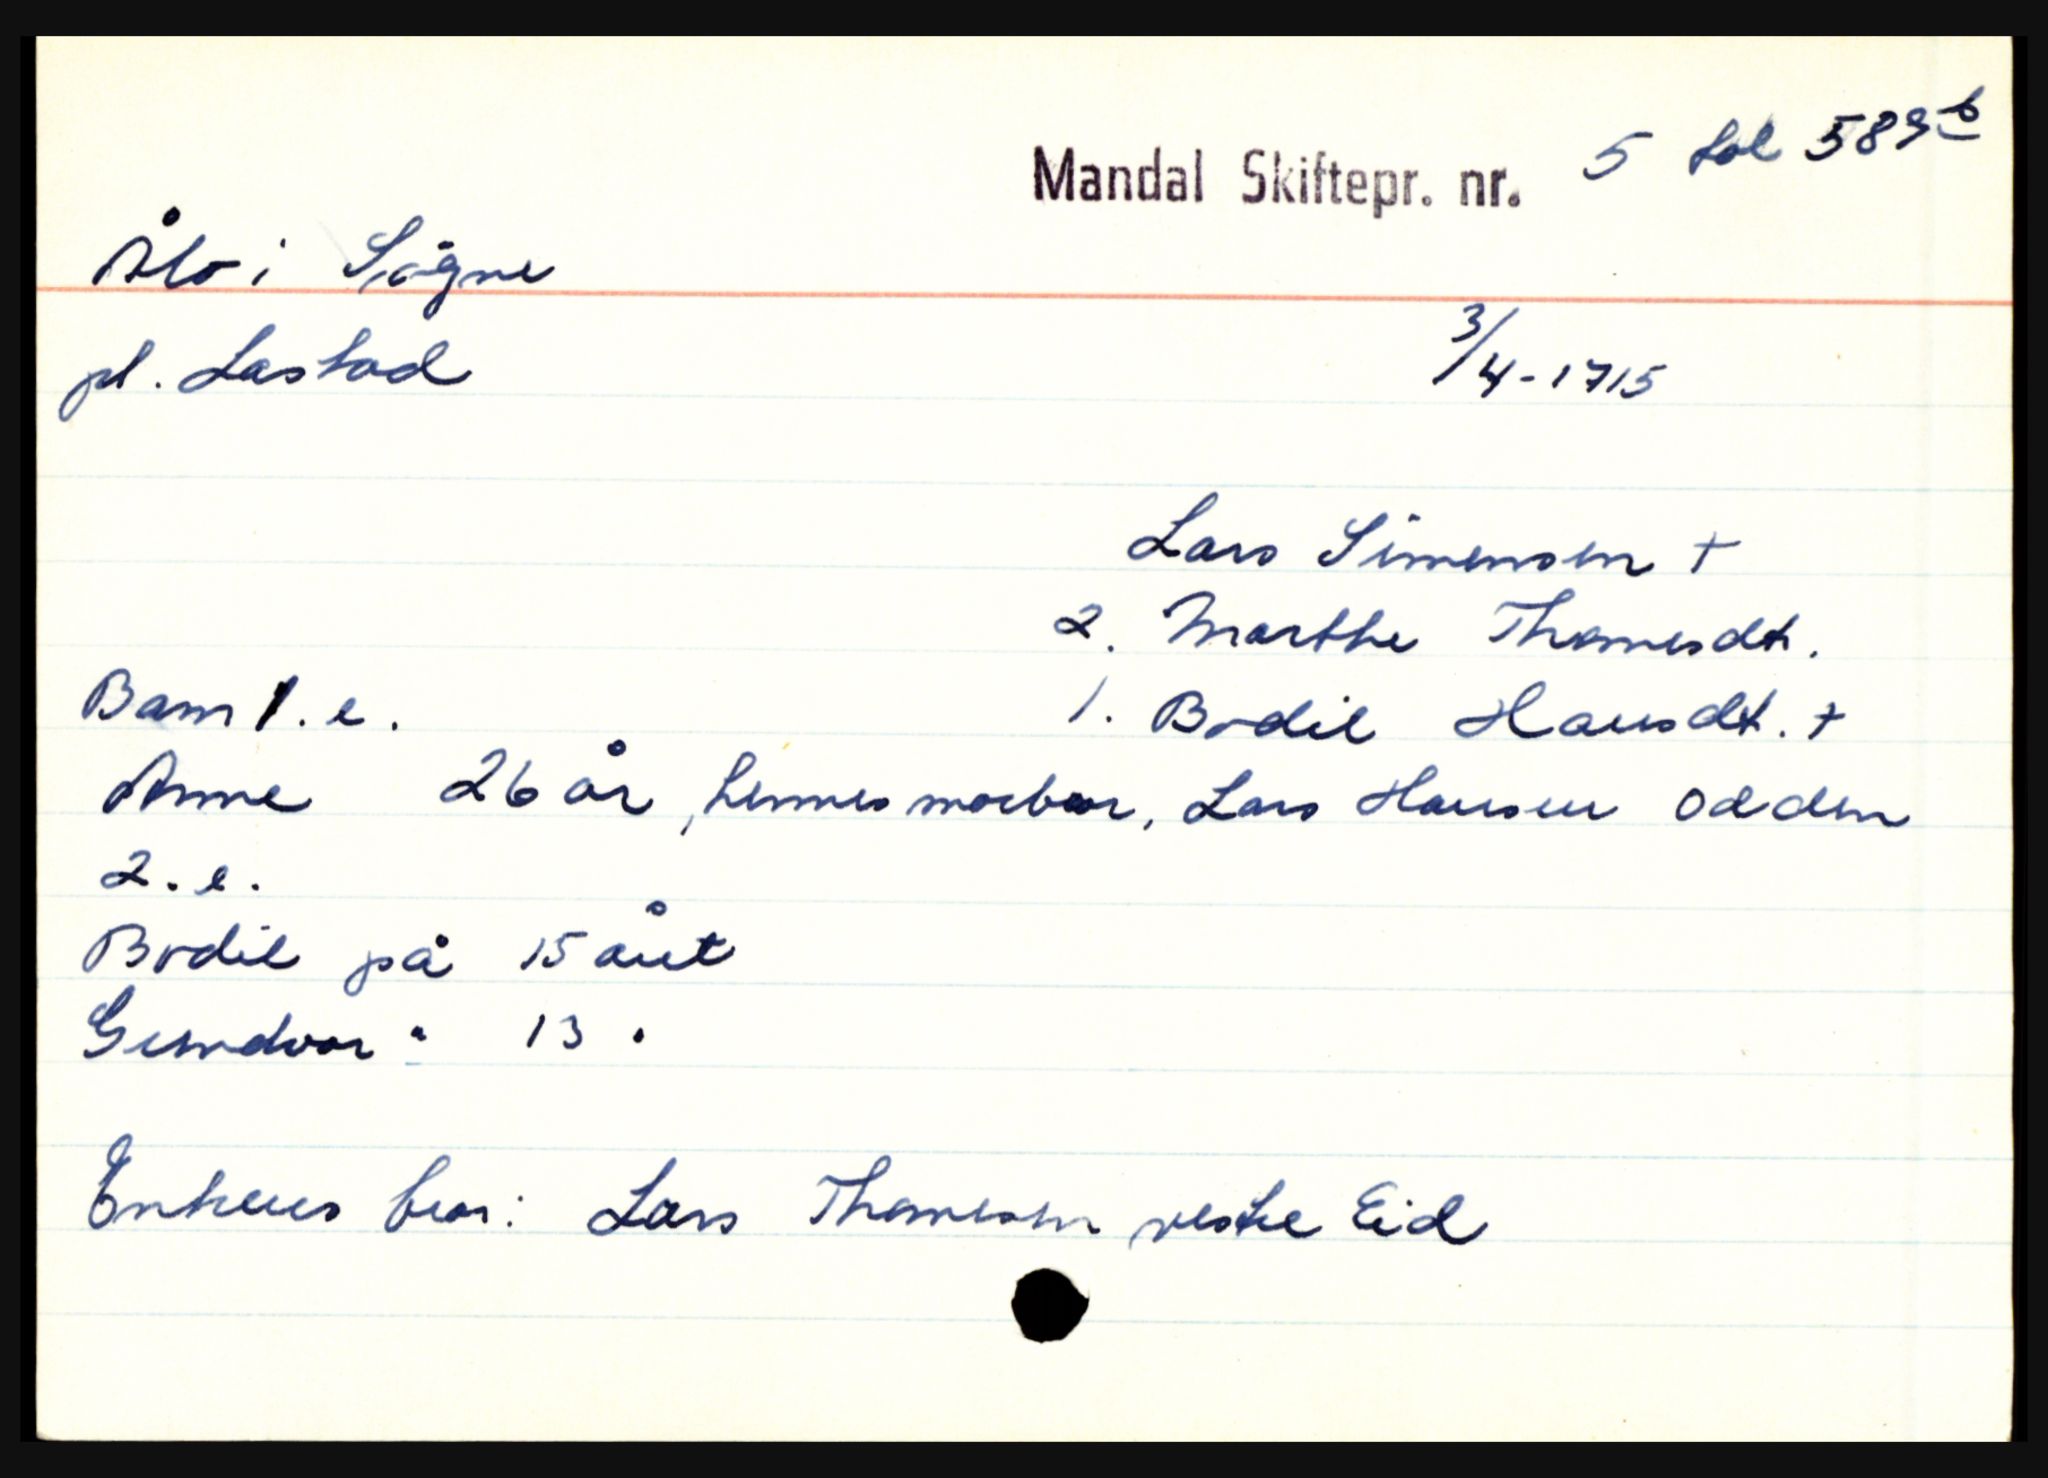 Mandal Skiftepr. nr. 5 fol 589b
Ålo i Sögne
pl. Lastad
3/4-1715
Lars Simensen +
2. Marthe Thomesdt.
Barn 1. e. 1. Bodil Hansdt. +
Anne 26 år, hennes morbror, Lars Hansen Odden
2. e.
Bodil på 15 året
Gundvor " 13 "
Enkens bror: Lars Thomesen vestre Eid